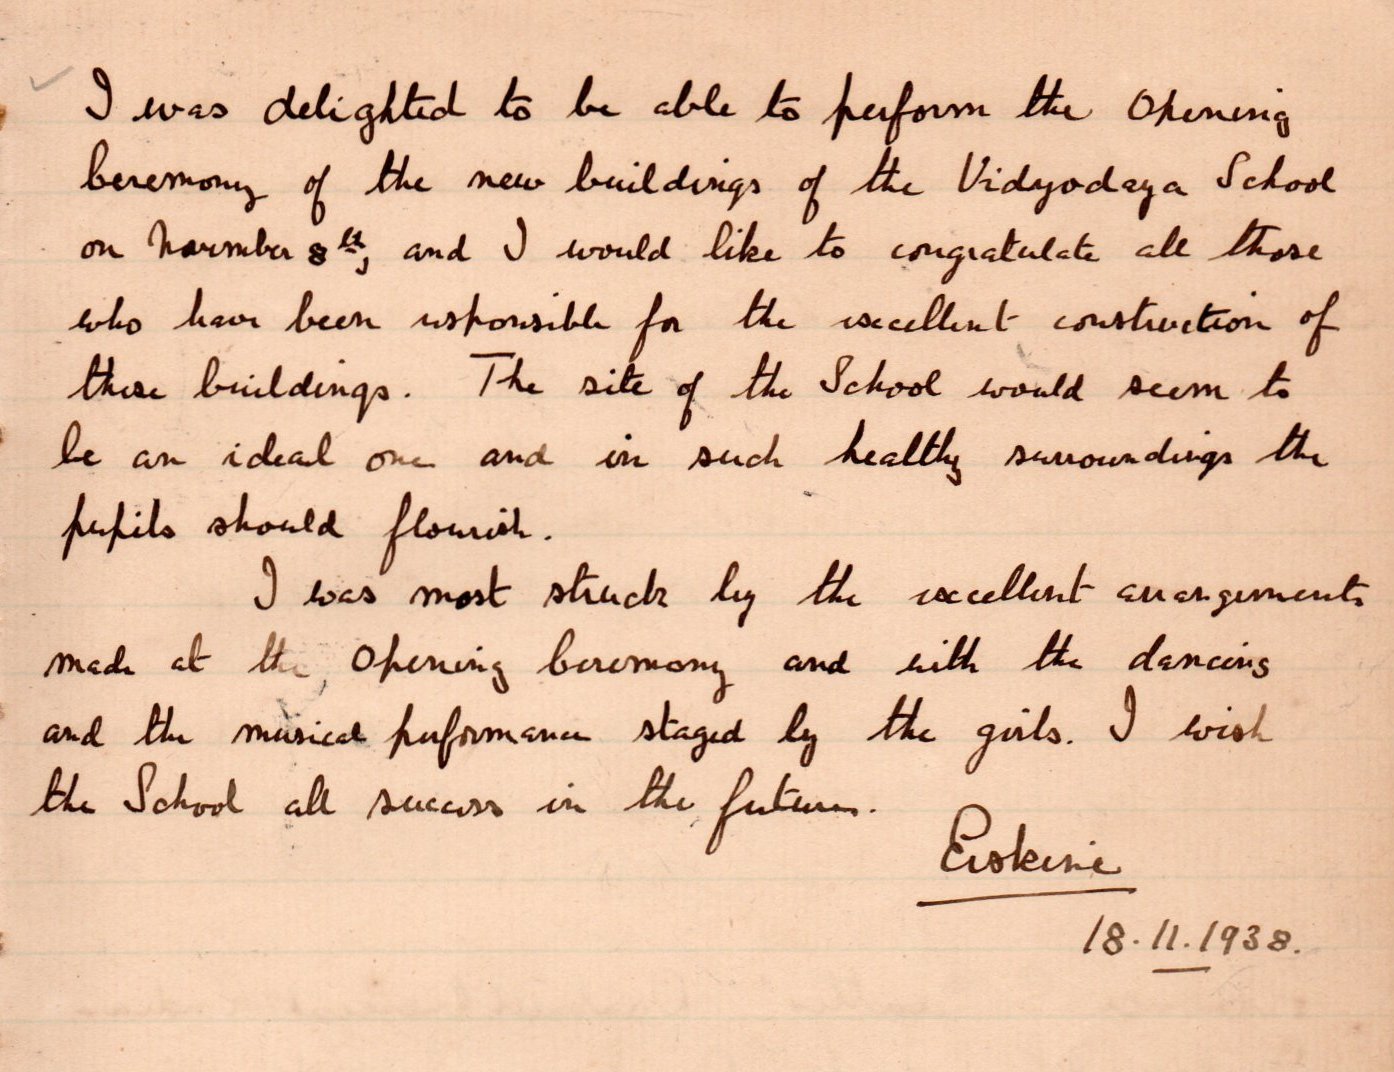 I was delighted to be able to perform the Opening
Ceremony of the new buildings of the Vidyodaya School
on November 8th, and I would like to congratulate all those
who have been responsible for the excellent construction of
these buildings. The site of the School would seem to
be an ideal one and in such healthy surroundings the
pupils should flourish.
I was most struck by the excellent arrangements
made at the Opening Ceremony and with the dancing
and the musical performance staged by the girls. I wish
the School all success in the future.
Erskine
18.11.1938.